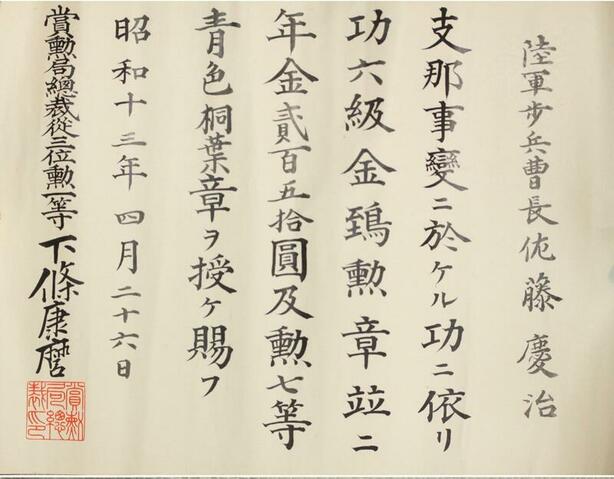 陸軍歩兵曹長佐藤慶治
支那事變ニ於ケル功ニ依リ
功六級金鵄勲章竝ニ
年金貳百五拾圓及勲七等
青色桐葉章ヲ授ケ賜フ
昭和十三年四月二十六日
賞勲局總裁從三位勲一等下條康麿
賞勲局總裁印